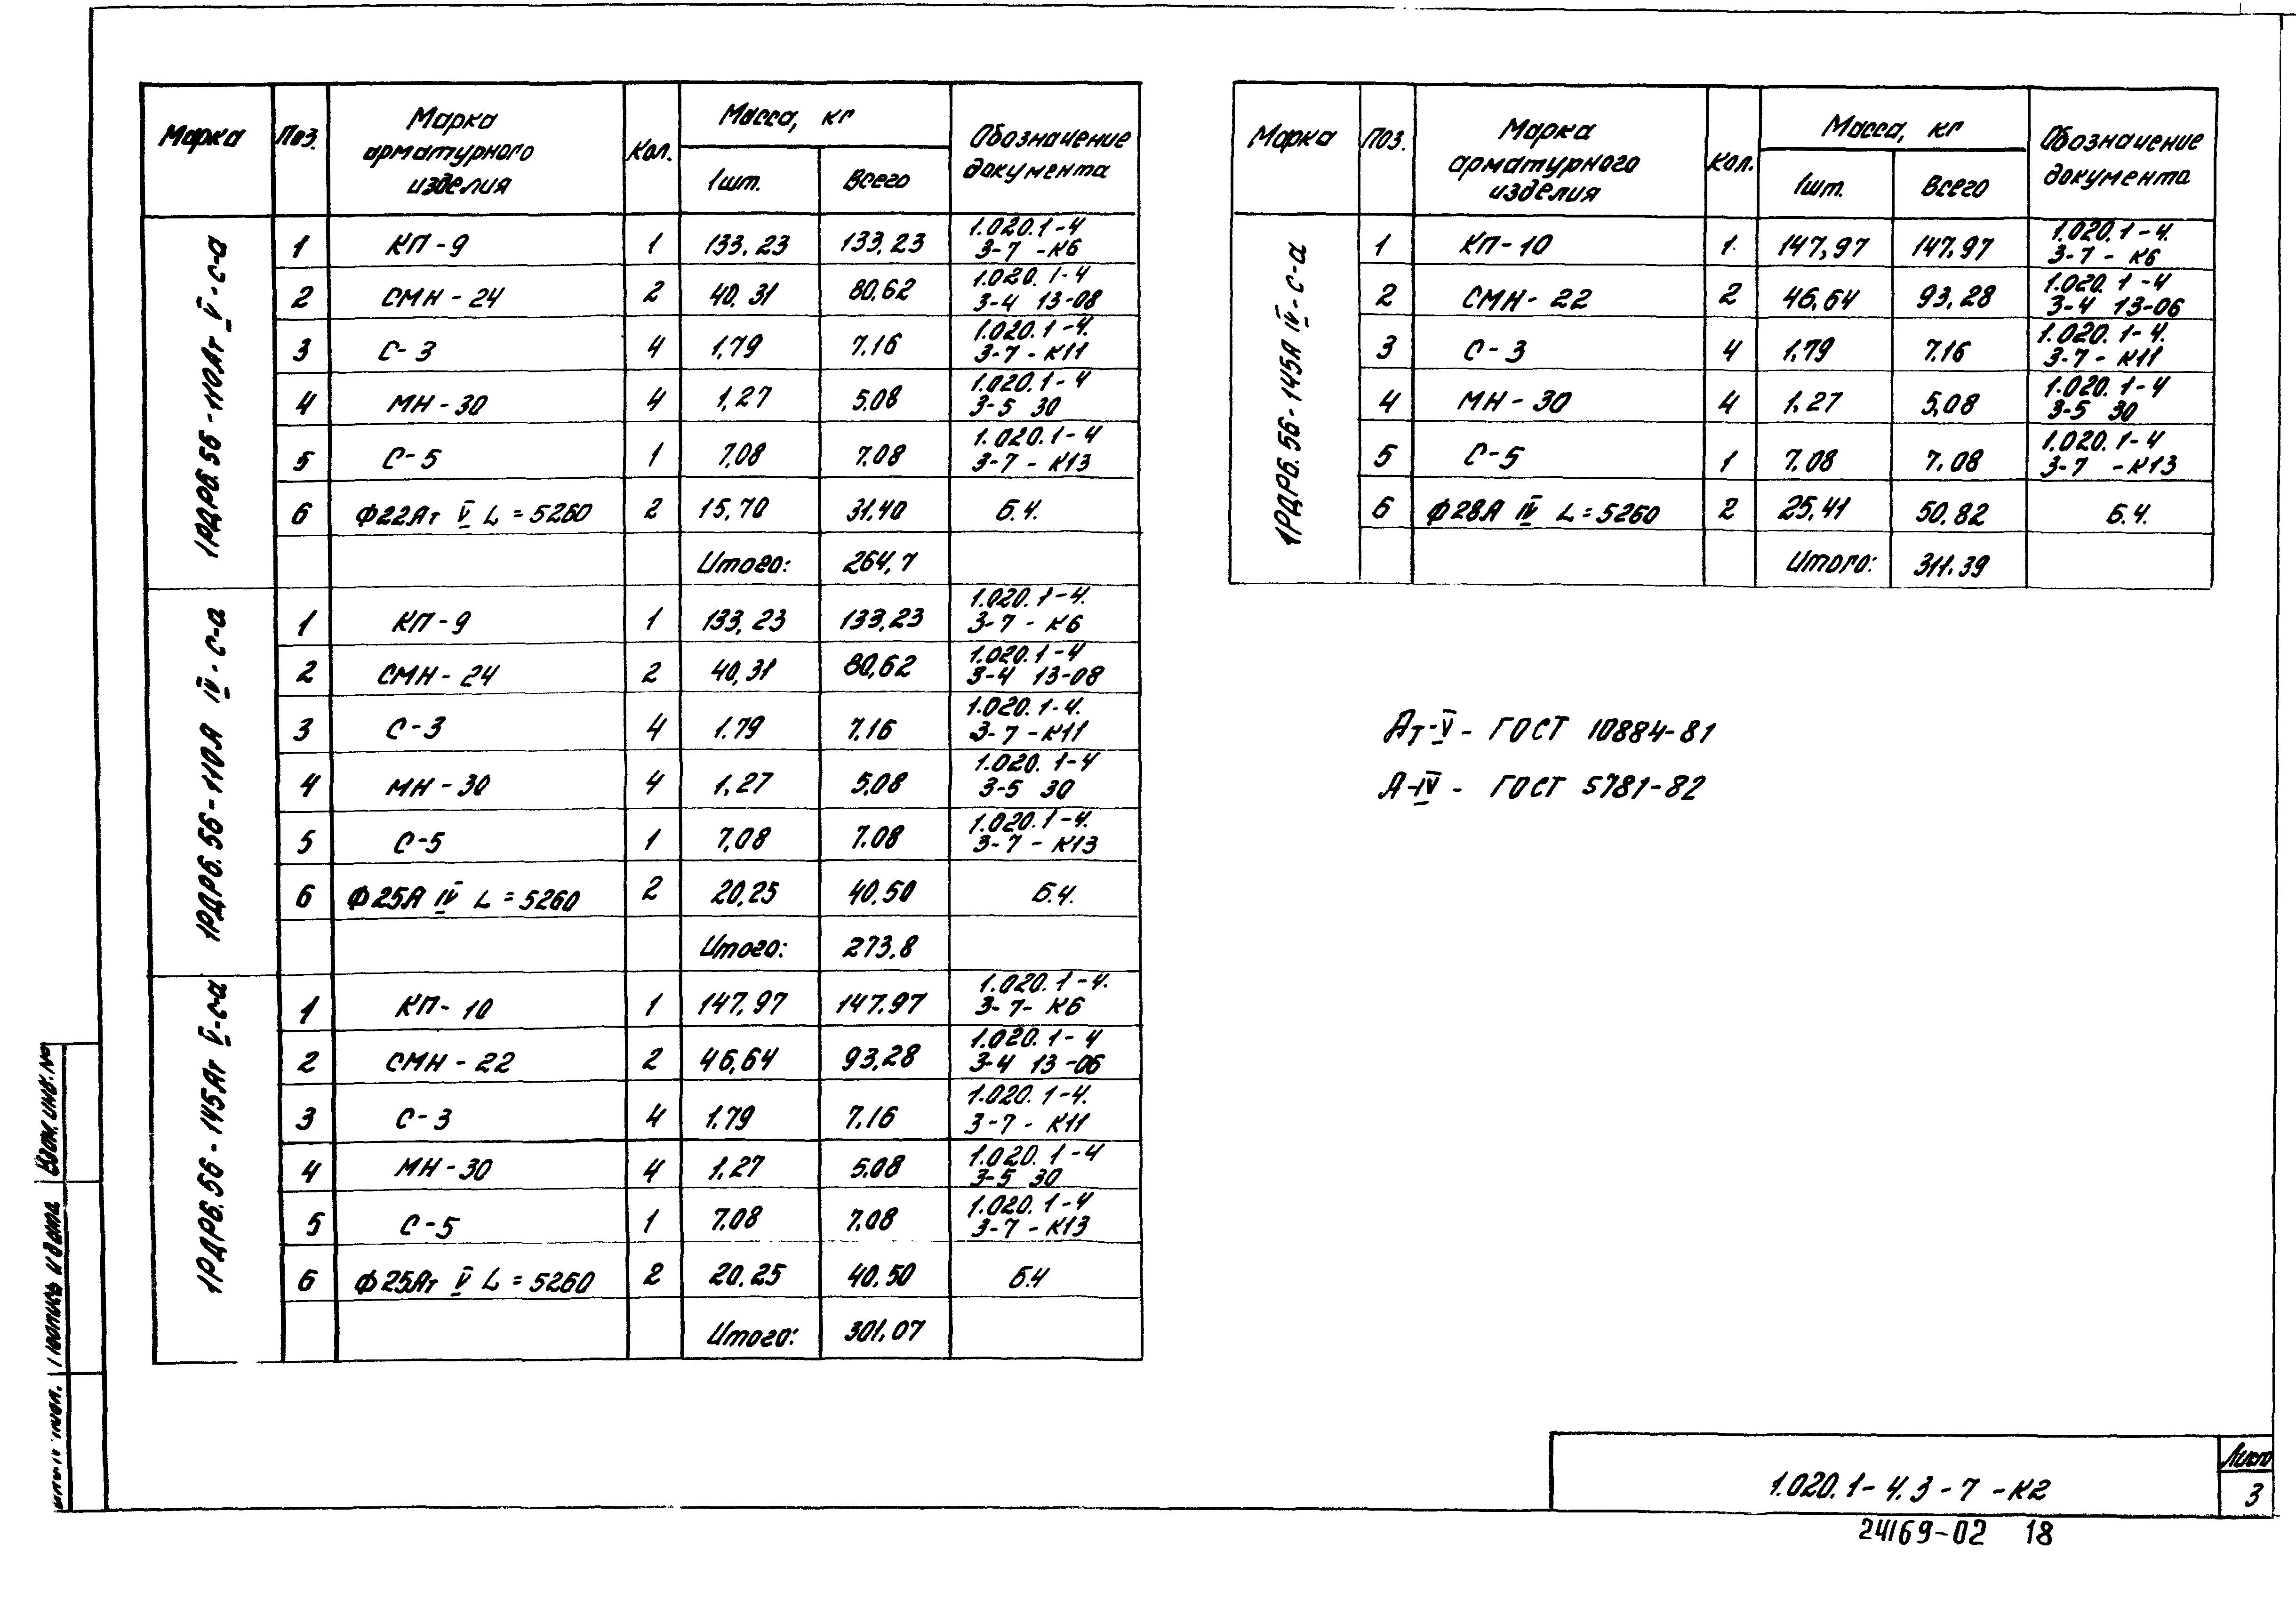 Марка Поз. Марка арматурного изделия Кол. Масса, кг Обозначение документа
1шт. Всего
1РДР6.56-110Ат V-с-а
1 КП-9 1 133,23 133,23 1.020.1-4 3-7 -К6
2 СМН-24 2 40,31 80,62 1.020.1-4 3-4 13-08
3 С-3 4 1,79 7,16 1.020.1-4. 3-7-К11
4 МН-30 4 1,27 5,08 1.020.1-4 3-5 30
5 С-5 1 7,08 7,08 1.020.1-4 3-7-К13
6 Ф22Ат V L=5260 2 15,70 31,40 Б.Ч.
Итого: 264,7
1РДР6.56-110А IV-с-а
1 КП-9 1 133,23 133,23 1.020.1-4. 3-7-К6
2 СМН-24 2 40,31 80,62 1.020.1-4 3-4 13-08
3 С-3 4 1.79 7,16 1.020.1-4. 3-7-К11
4 МН-30 4 1,27 5,08 1.020.1-4 3-5 30
5 С-5 1 7,08 7.08 1.020.1-4. 3-7-К13
6 Ф25А IV L=5260 2 20,25 40,50 Б.Ч.
Итого: 273,8
1РДР6.56-145Ат V-с-а
1 КП-10 1 147,97 147.97 1.020.1-4. 3-7-К6
2 СМН-22 2 46,64 93,28 1.020.1-4 3-4 13-06
3 С-3 4 1,79 7,16 1.020.1-4. 3-7-К11
4 МН-30 4 1,27 5,08 1.020.1-4 3-5 30
5 С-5 1 7,08 7,08 1.020.1-4 3-7-К13
6 Ф25Ат V L=5260 2 20.25 40,50 Б.Ч
Итого: 301,07
Марка Поз. Марка арматурного изделия Кол. Масса, кг Обозначение документа
1шт. Всего
1РДР6.56-145А IV-с-а
1 КП-10 1. 147,97 147,97 1.020.1-4. 3-7-К6
2 СМН-22 2 46,64 93,28 1.020.1-4 3-4 13-06
3 С-3 4 1,79 7,16 1.020.1-4. 3-7-К11
4 МН-30 4 1,27 5,08 1.020.1-4 3-5 30
5 С-5 1 7,08 7,08 1.020.1-4 3-7 -К13
6 Ф28А IV L=5260 2 25,41 50,82 Б.Ч.
Итого: 311,39
Ат-V - ГОСТ 10884-81
А-IV - ГОСТ 5781-82
Взам.инв.№
Подпись и дата
1.020.1-4.3-7-К2
Лист
3
24169-02 18